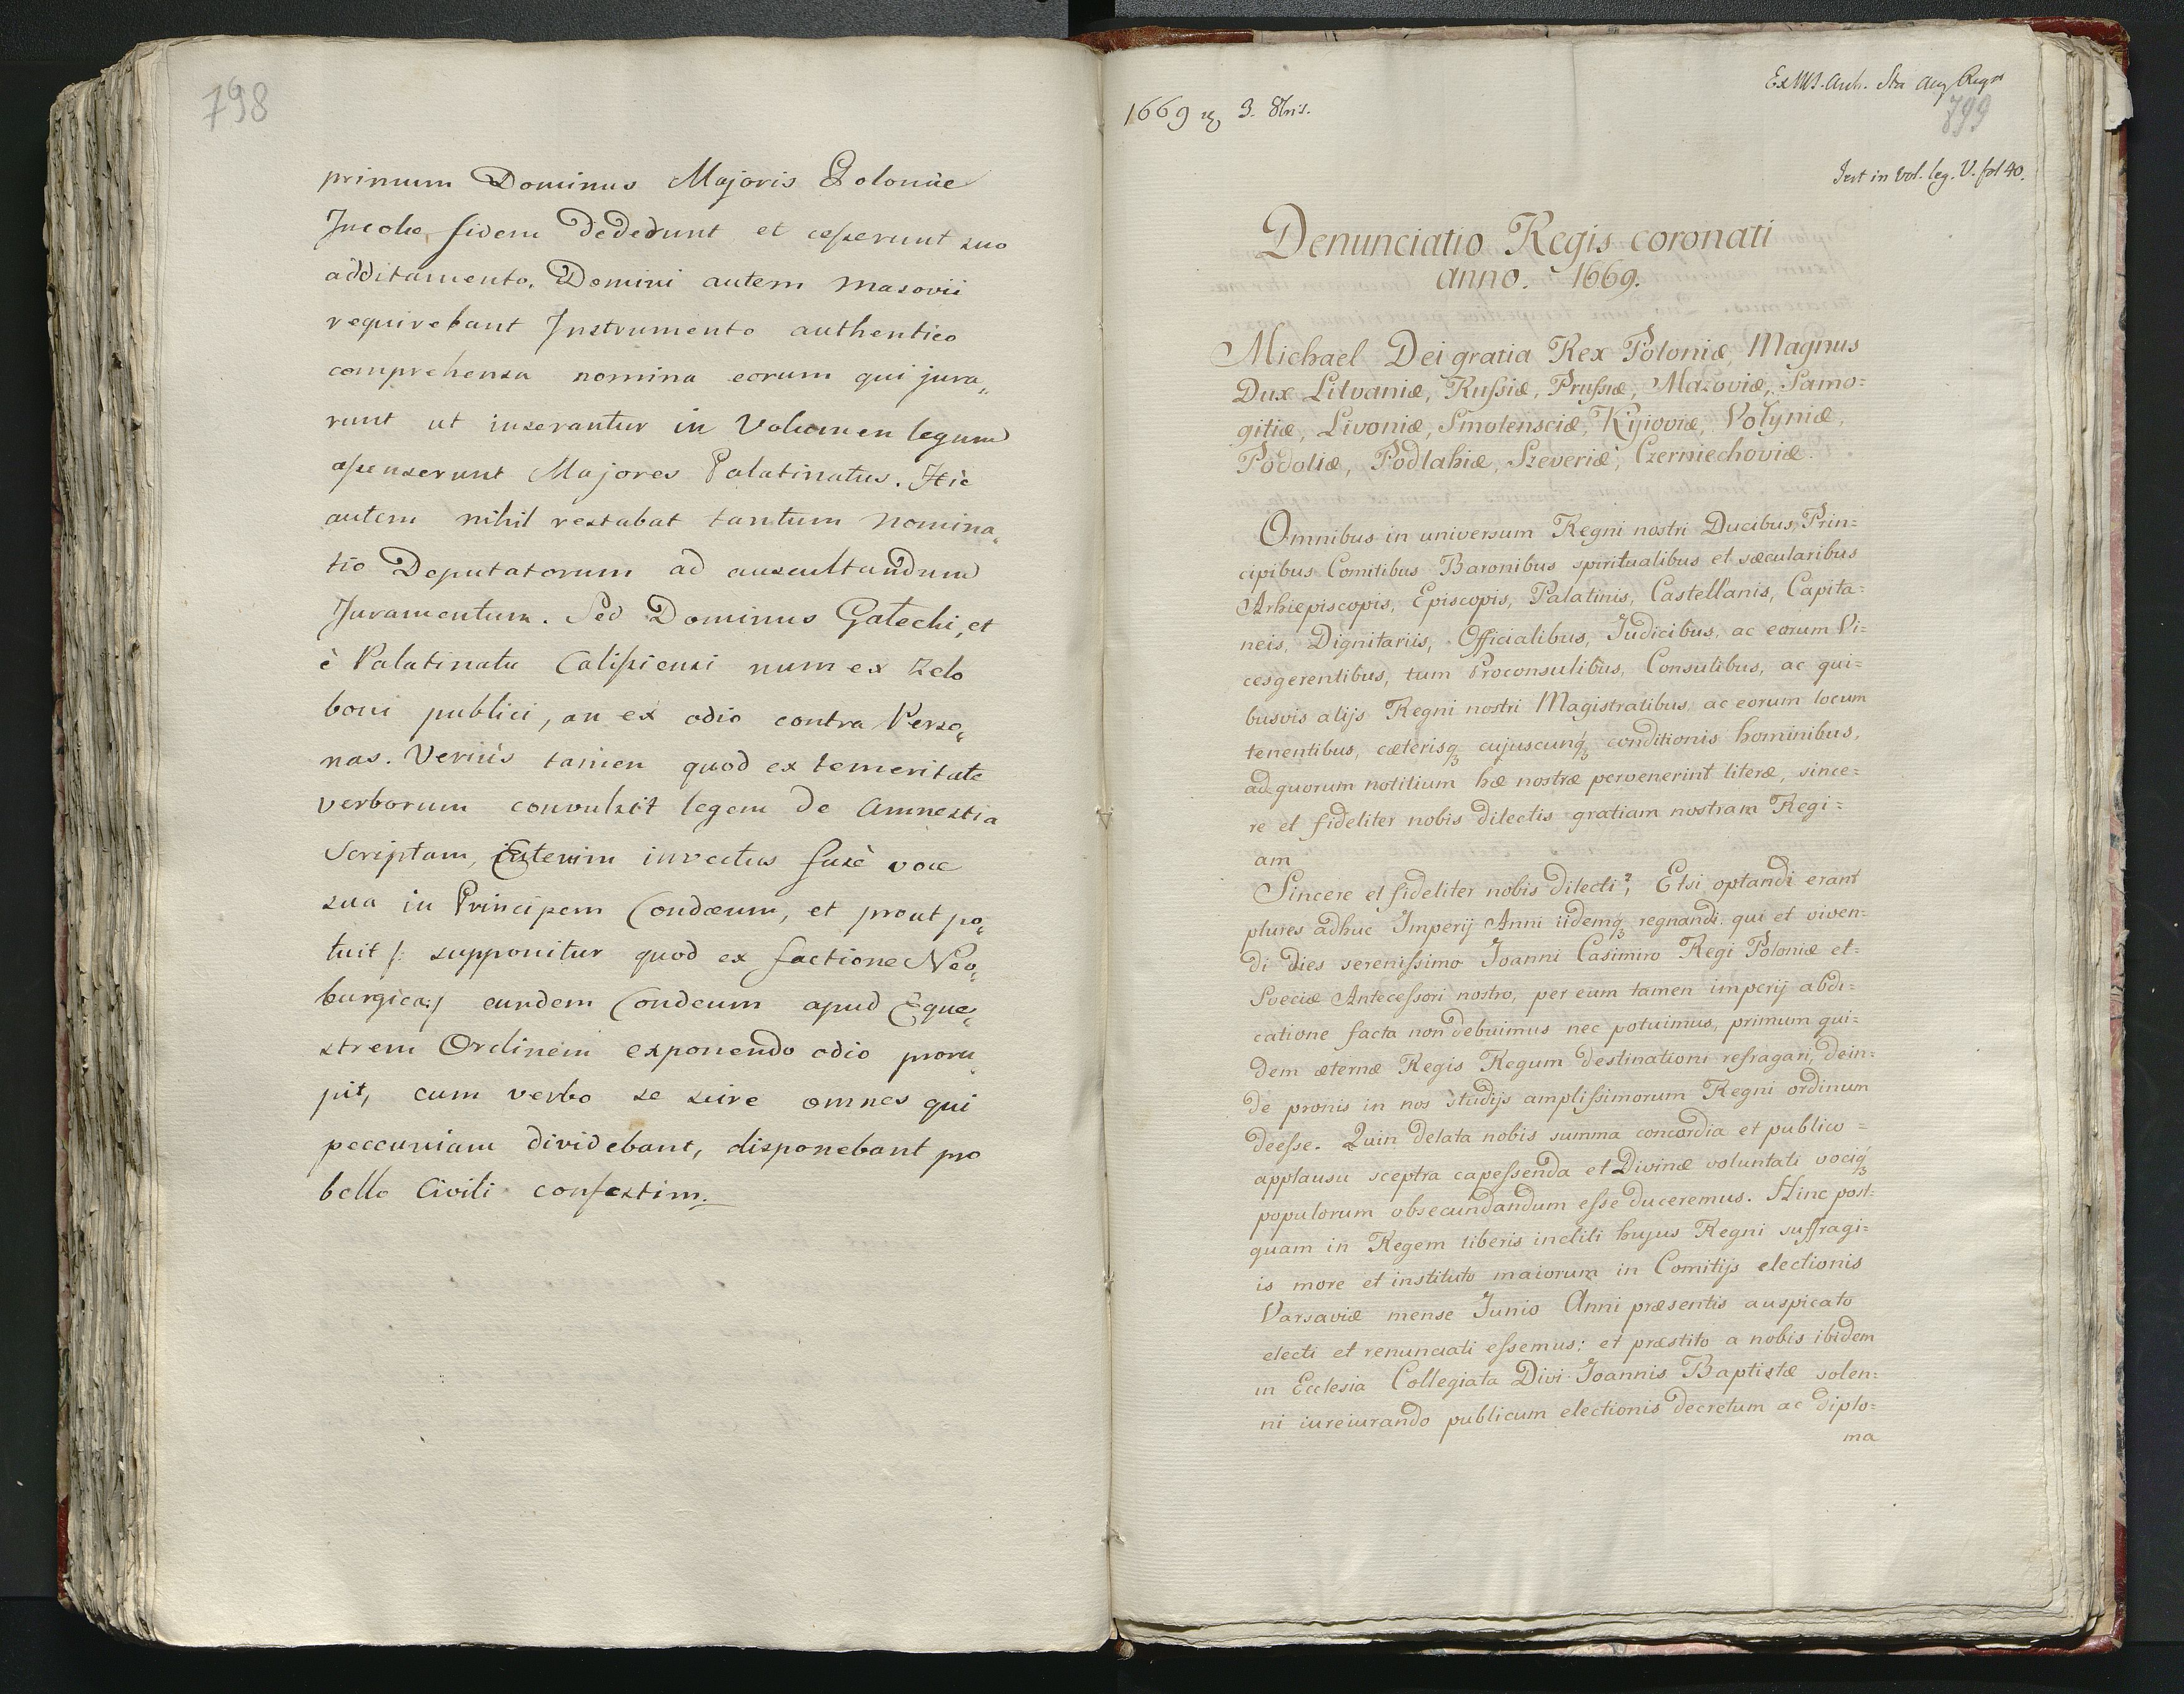 798
primum Dominus Majoris Poloniæ
Incolæ fidem dederunt et cesserunt suo
additamento. Domini autem Masovii
requirebant Instrumento authentico
comprehensa nomina eorum qui jura„
runt ut inserantur in Volumen legum
assenserunt Majores Palatinatus. Hic
autem nihil restabat tantum nomina„
tio Deputatorum ad auscultandum
Juramentum. Sed Dominus Galechi, et
è Palatinatu Calissiensi num ex zelo
boni publici, an ex odio contra Perso„
nas. Veriùs tamen quod ex temeritate
verborum convulsit legem de Amnestia
Scriptam, Etenim invectus fusè voce
sua in Principem Condæum, et prout po„
tuit /: supponitur quod ex factione Neo„
burgica:/ eundem Condeum apud Eque„
strem Ordinem exponendo odio proru„
pit, cum verbo se scire omnes qui
peccuniam dividebant, disponebant pro
bello Civili confestim.
1669 3. 8bris.
Ex MS. Arch. Sta Aug Regis
799
Jest in Vol. leg. V. fol 40.
Denunciatio Regis coronati
anno. 1669.
Michael Dei gratia Rex Poloniæ, Magnus
Dux Litvaniæ, Russiæ, Prussiæ, Mazoviæ, Samo=
gitiæ, Livoniæ, Smolensciæ, Kijoviæ, Volyniæ,
Podoliæ, Podlahiæ, Szeveriæ, Czerniechoviæ.
Omnibus in universum Regni nostri Ducibus, Prin=
cipibus Comitibus Baronibus spiritualibus et sæcularibus
Arhiepiscopis, Episcopis, Palatinis, Castellanis, Capita=
neis, Dignitariis, Officialibus, Iudicibus, ac eorum Vi=
cesgerentibus, tum Proconsulibus, Consulibus, ac qui=
busvis alijs Regni nostri Magistratibus, ac eorum locum
tenentibus, cæterisq3 cujuscunq3 conditionis hominibus,
ad quorum notitium hæ nostræ pervenerint literæ, since=
re et fideliter nobis dilectis gratiam nostram Regi=
am
Sincere et fideliter nobis dilecti, Etsi optandi erant
plures adhuc Imperij Anni iidemq3 regnandi qui et viven=
di dies serenissimo Ioanni Casimiro Regi Poloniæ et=
Sveciæ Antecessori nostro, per eum tamen imperij abdi=
catione facta non debuimus nec potuimus, primum qui=
dem æternæ Regis Regum destinationi refragari, dein=
de pronis in nos studijs amplissimorum Regni ordinum
deesse. Quin delata nobis summa concordia et publico =
applausu sceptra capessenda et Divinæ voluntati vociq3
populorum obsecundandum esse duceremus. Hinc post=
quam in Regem liberis incliti hujus Regni suffragi=
is more et instituto maiorum in Comitijs electionis
Varsaviæ mense Iunio Anni præsentis auspicato
electi et renunciati essemus; et præstito a nobis ibidem
in Ecclesia Collegiata Divi Ioannis Baptistæ solen=
ni iureiurando publicum electionis decretum ac diplo=
ma